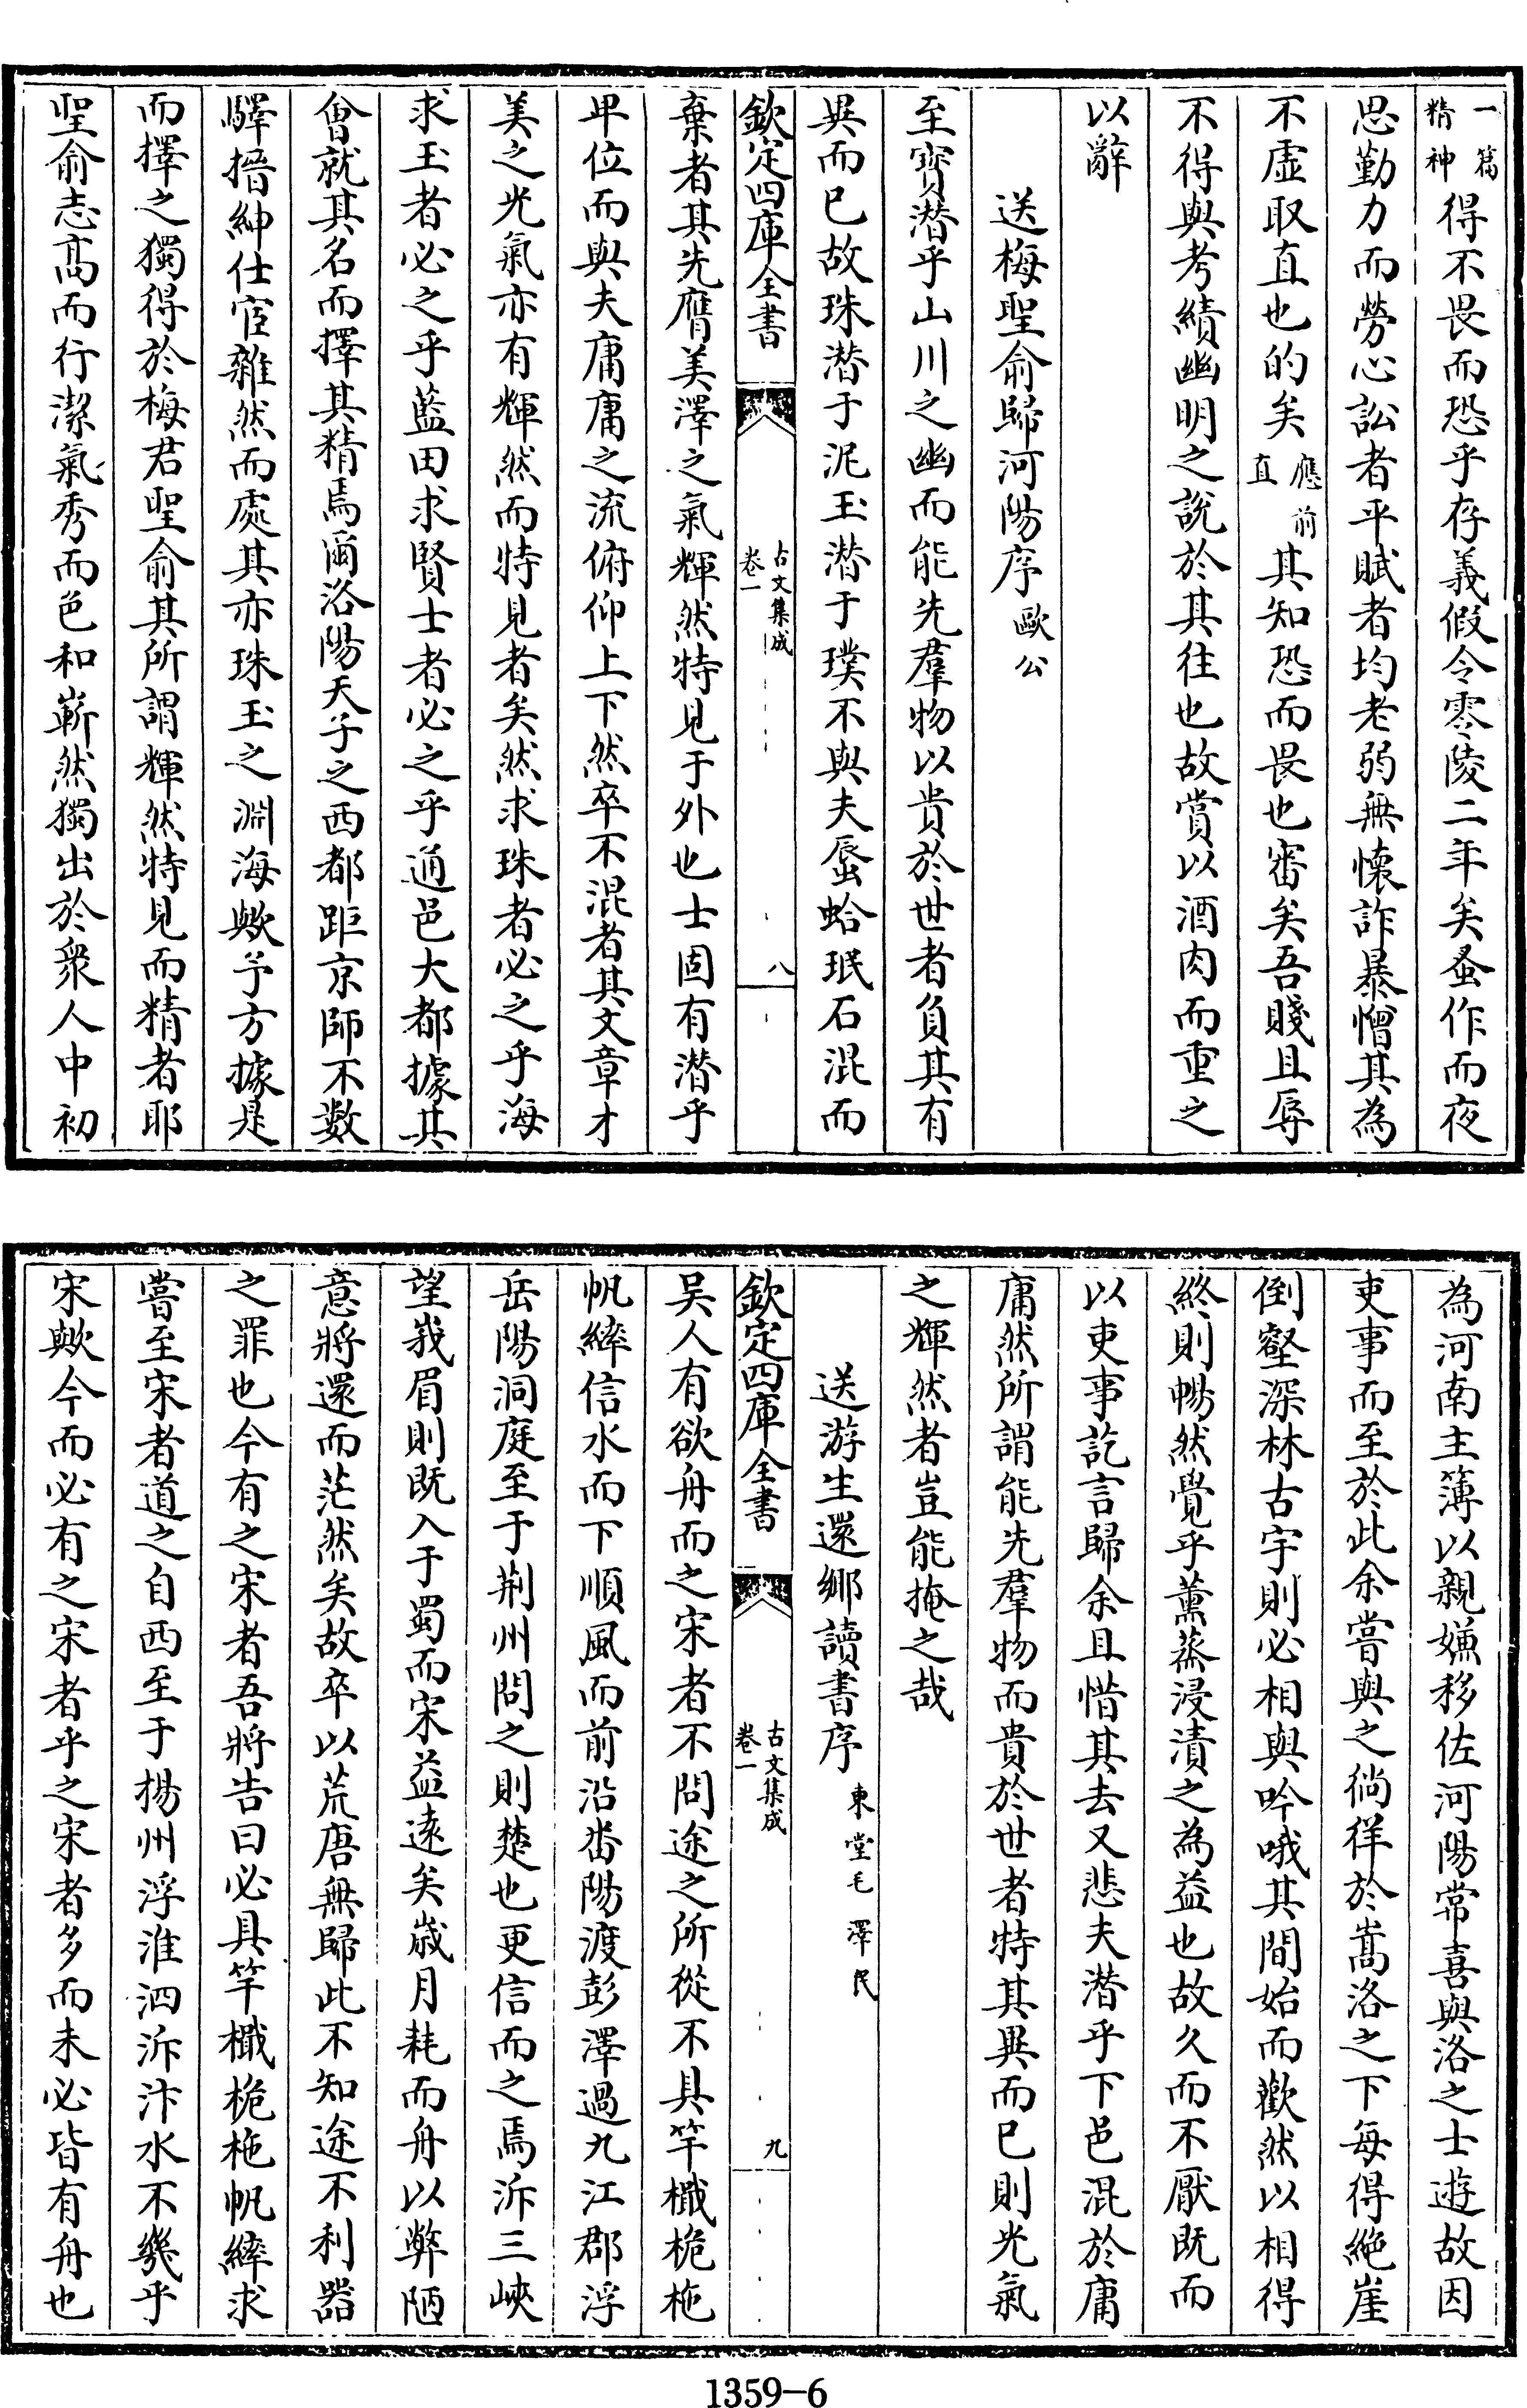 一篇精神得不畏而恐乎存義假令零陵二年矣蚤作而夜
思勤力而勞心訟者平賦者均老弱無懷詐暴憎其為
不虛取直也的矣應前直其知恐而畏也審矣吾賤且辱
不得與考績幽明之說於其往也故賞以酒肉而重之
以辭
送梅聖俞歸河陽序歐公
至寶潛乎山川之幽而能先羣物以貴於世者負其有
異而已故珠潛于泥玉潛于璞不與夫蜃蛤珉石混而
欽定四庫全書
古文集成
卷一
八
棄者其先膺美澤之氣輝然特見于外也士固有潛乎
卑位而與夫庸庸之流俯仰上下然卒不混者其文章才
美之光氣亦有輝然而特見者矣然求珠者必之乎海
求玉者必之乎藍田求賢士者必之乎通邑大都據其
會就其名而擇其精焉爾洛陽天子之西都距京師不數
驛搢紳仕宦雜然而處其亦珠玉之淵海歟予方據是
而擇之獨得於梅君聖俞其所謂輝然特見而精者耶
聖俞志高而行潔氣秀而色和嶄然獨出於衆人中初
為河南主簿以親嫌移佐河陽常喜與洛之士遊故因
吏事而至於此余嘗與之徜徉於嵩洛之下每得絶崖
倒壑深林古宇則必相與吟哦其間始而歡然以相得
終則暢然覺乎薰蒸浸漬之為益也故久而不厭既而
以吏事訖言歸余且惜其去又悲夫潛乎下邑混於庸
庸然所謂能先羣物而貴於世者特其異而已則光氣
之輝然者豈能掩之哉
送游生還鄉讀書序東堂毛澤民
欽定四庫全書
古文集成
卷一
九
吴人有欲舟而之宋者不問途之所從不具竿檝桅柂
帆縴信水而下順風而前沿畨陽渡彭澤過九江郡浮
岳陽洞庭至于荆州問之則楚也更信而之焉泝三峽
望峩眉則既入于蜀而宋益逺矣嵗月耗而舟以弊陋
意將還而茫然矣故卒以荒唐無歸此不知途不利器
之罪也今有之宋者吾將告曰必具竿檝桅柂帆縴求
嘗至宋者道之自西至于揚州浮淮泗泝汴水不幾乎
宋歟今而必有之宋者乎之宋者多而未必皆有舟也
1359-6